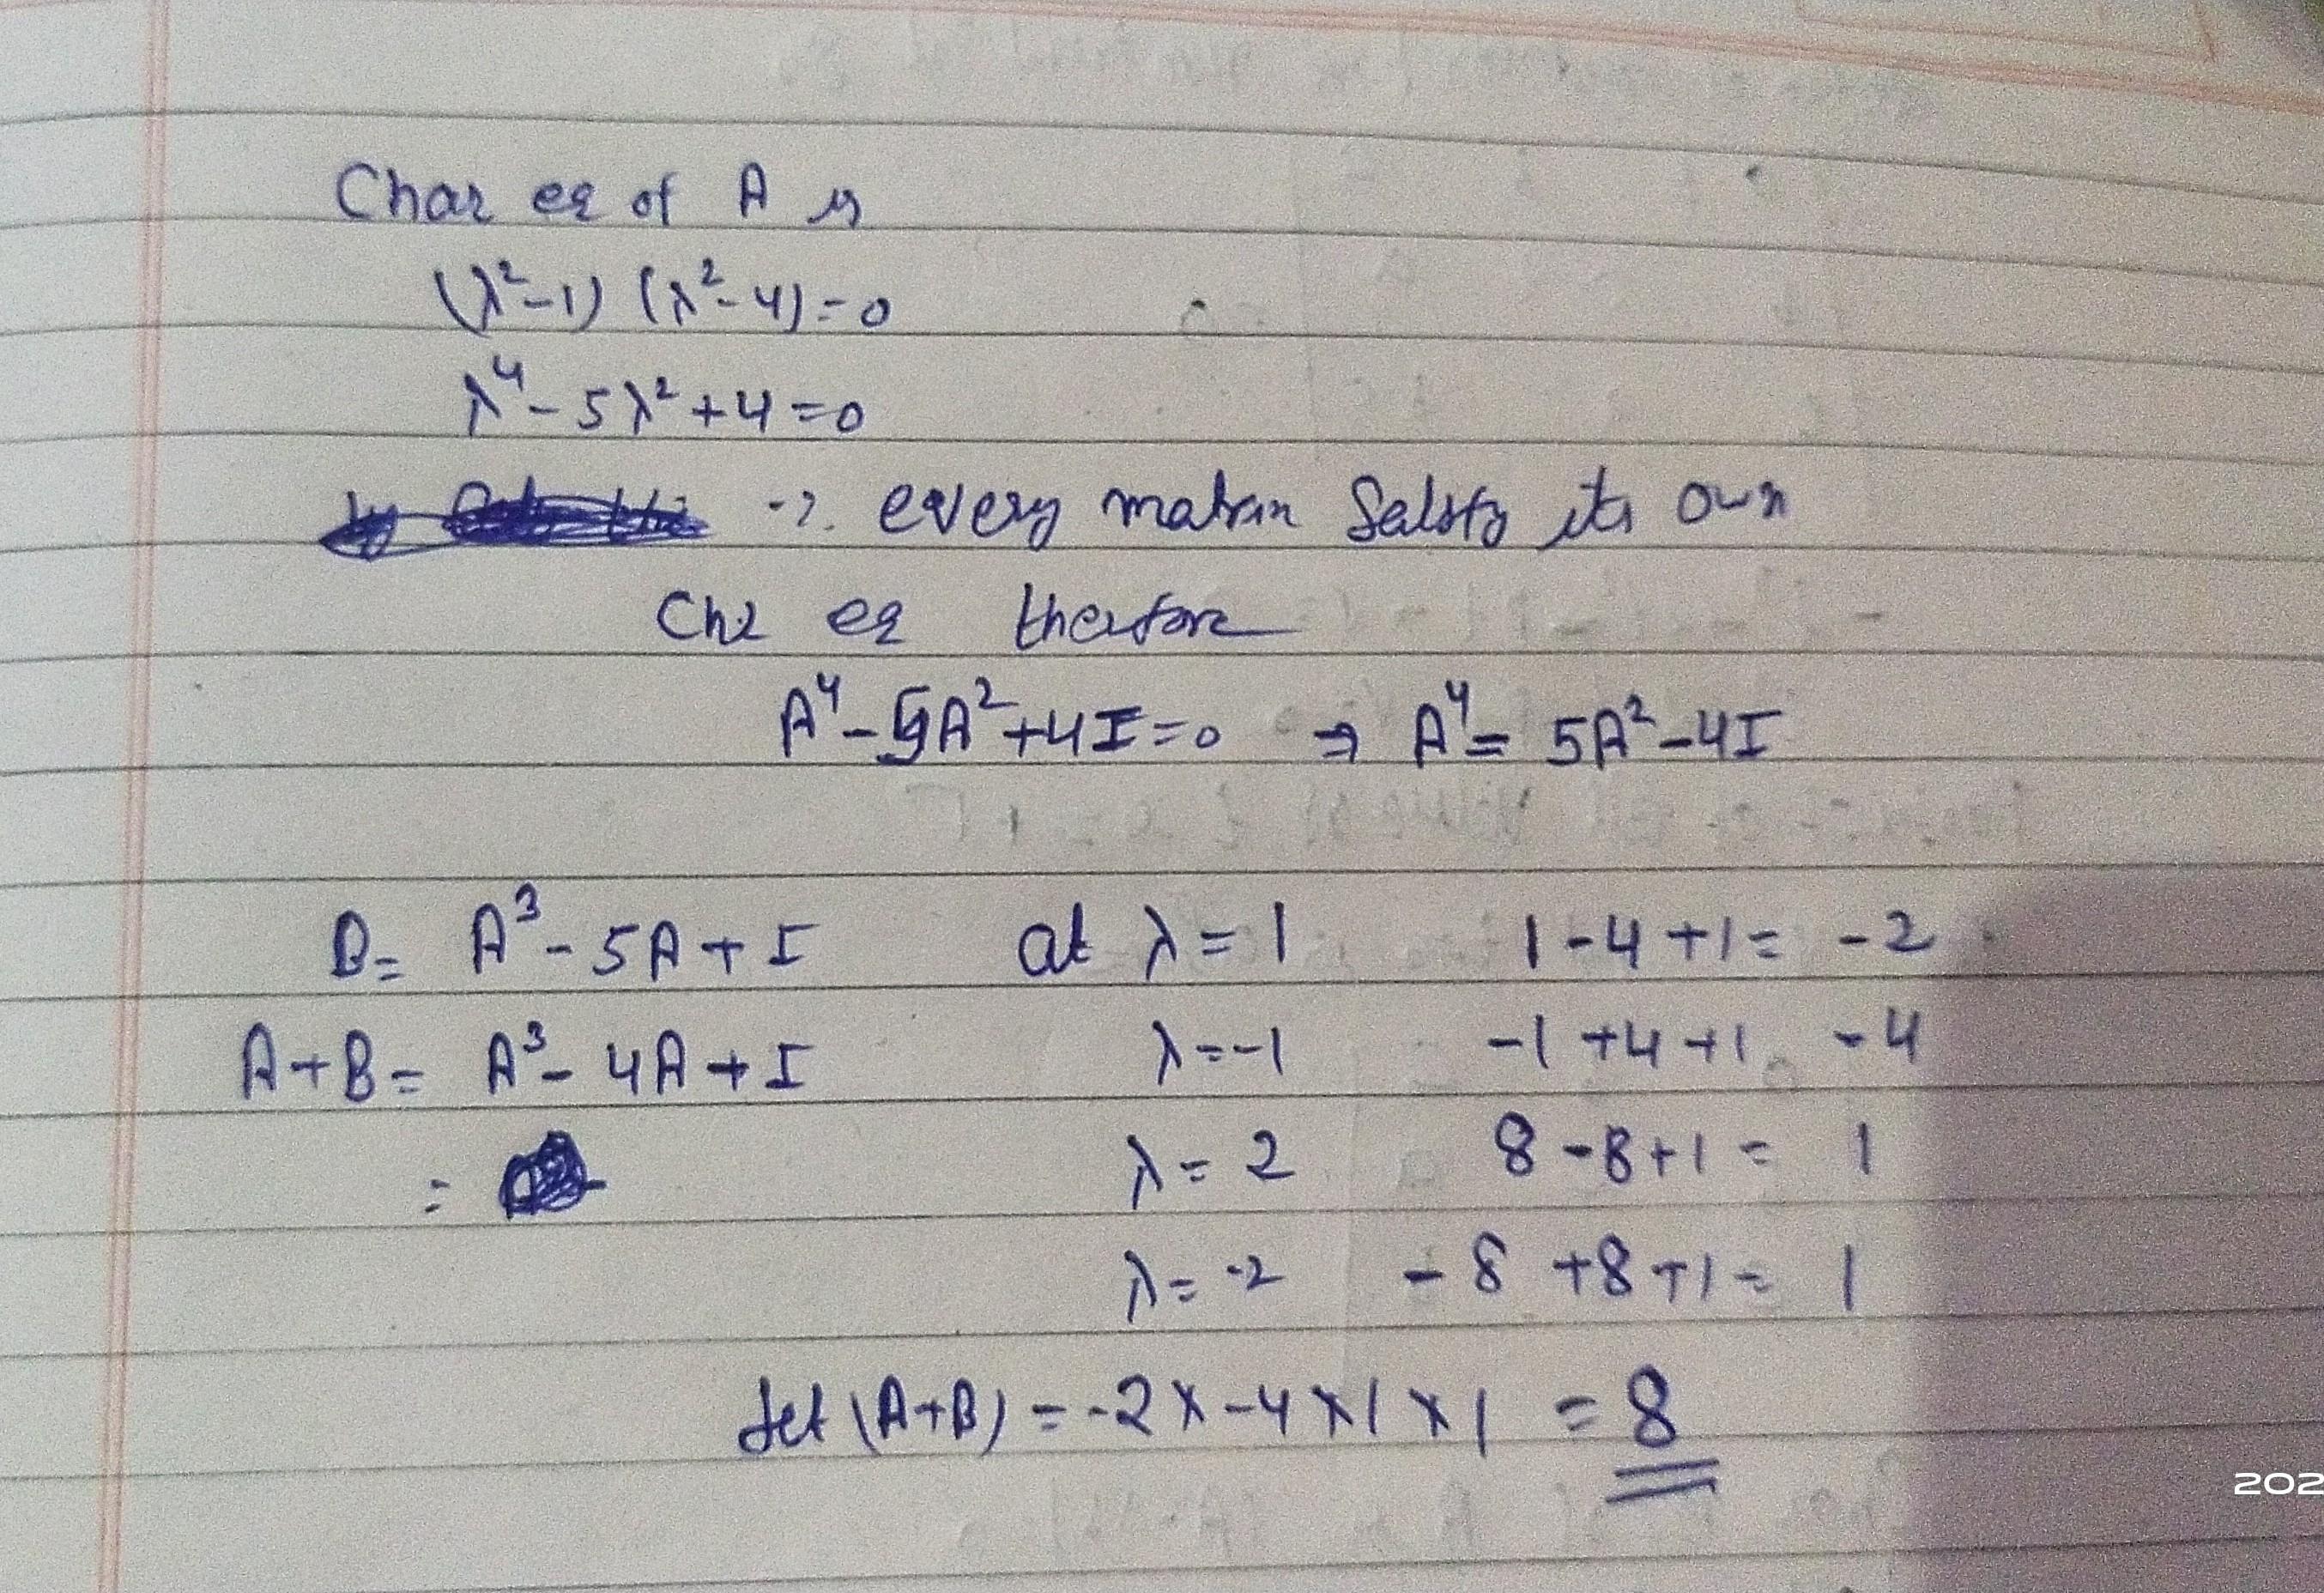 Char eq of A is
(λ²-1) (λ²-4)=0
λ⁴-5λ²+4=0
∵ every matrix Satsfy its own
Chr eq therfore
A⁴-5A²+4I=0 ⇒ A⁴= 5A²-4I
B= A³-5A+I at λ=1 1-4+1= -2
A+B= A³-4A+I λ=-1 -1+4+1 -4
= λ=2 8-8+1= 1
λ=-2 -8+8+1= 1
det (A+B) = -2X-4X1X1 = 8
202